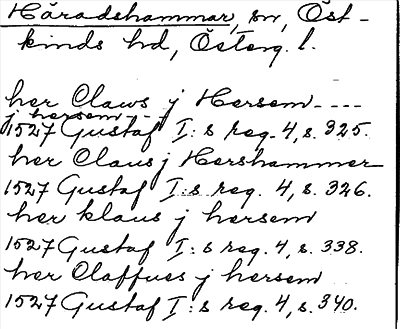 Häradshammar, sn, Öst-
kinds hd, Österg. l.
her Claws j Hersem ----
j hersem - - j
1527 Gustaf I:s reg. 4, s. 325.
her Claus j Hershammer
1527 Gustaf I:s reg. 4, s. 326.
her klaus j hersem
1527 Gustaf I:s reg. 4, s. 338.
her Claffues j hersem
1527 Gustaf I:s reg. 4, s. 340.